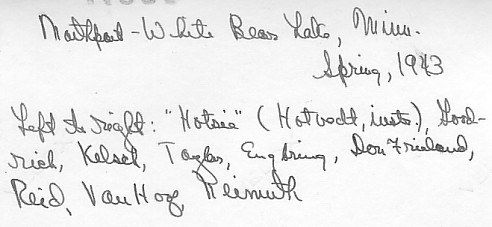 Northport - White Bear Lake, Minn.
Spring, 1943
Left to right: "Hotsie" (Hotvedt, instr.), Good-
rich, Kelsel, Taylor, Engbring, Don Frieland,
Reid, Van Hoof, Reimuth